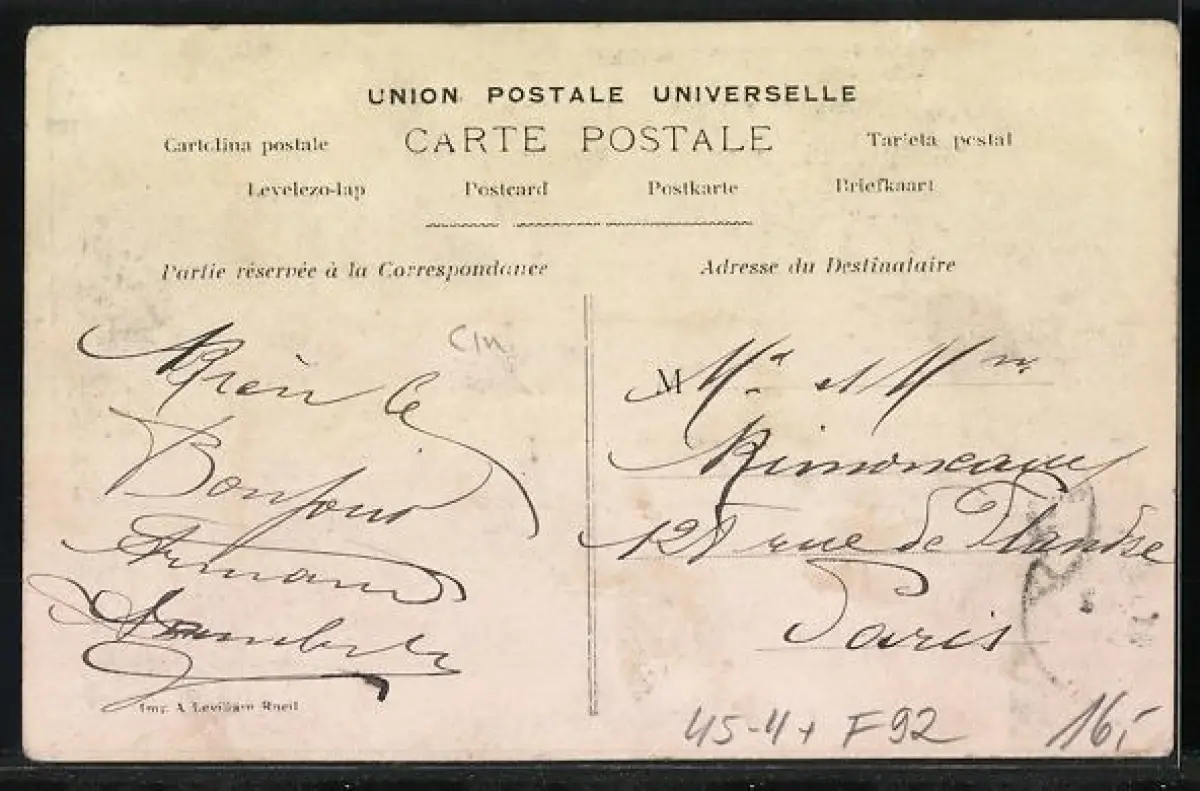 UNION POSTALE UNIVERSELLE
Cartolina postale CARTE POSTALE Tarjeta postal
Levelezo-lap Postcard Postkarte Briefkaart
Partie réservée à la Correspondance
Adresse du Destinataire
le
Bonjour
Armand
M Mr et Mme
Rimoneaux
128 rue de Flandre
Paris
Imp. A Levilliam Rueil
45-4+ F92 16,-